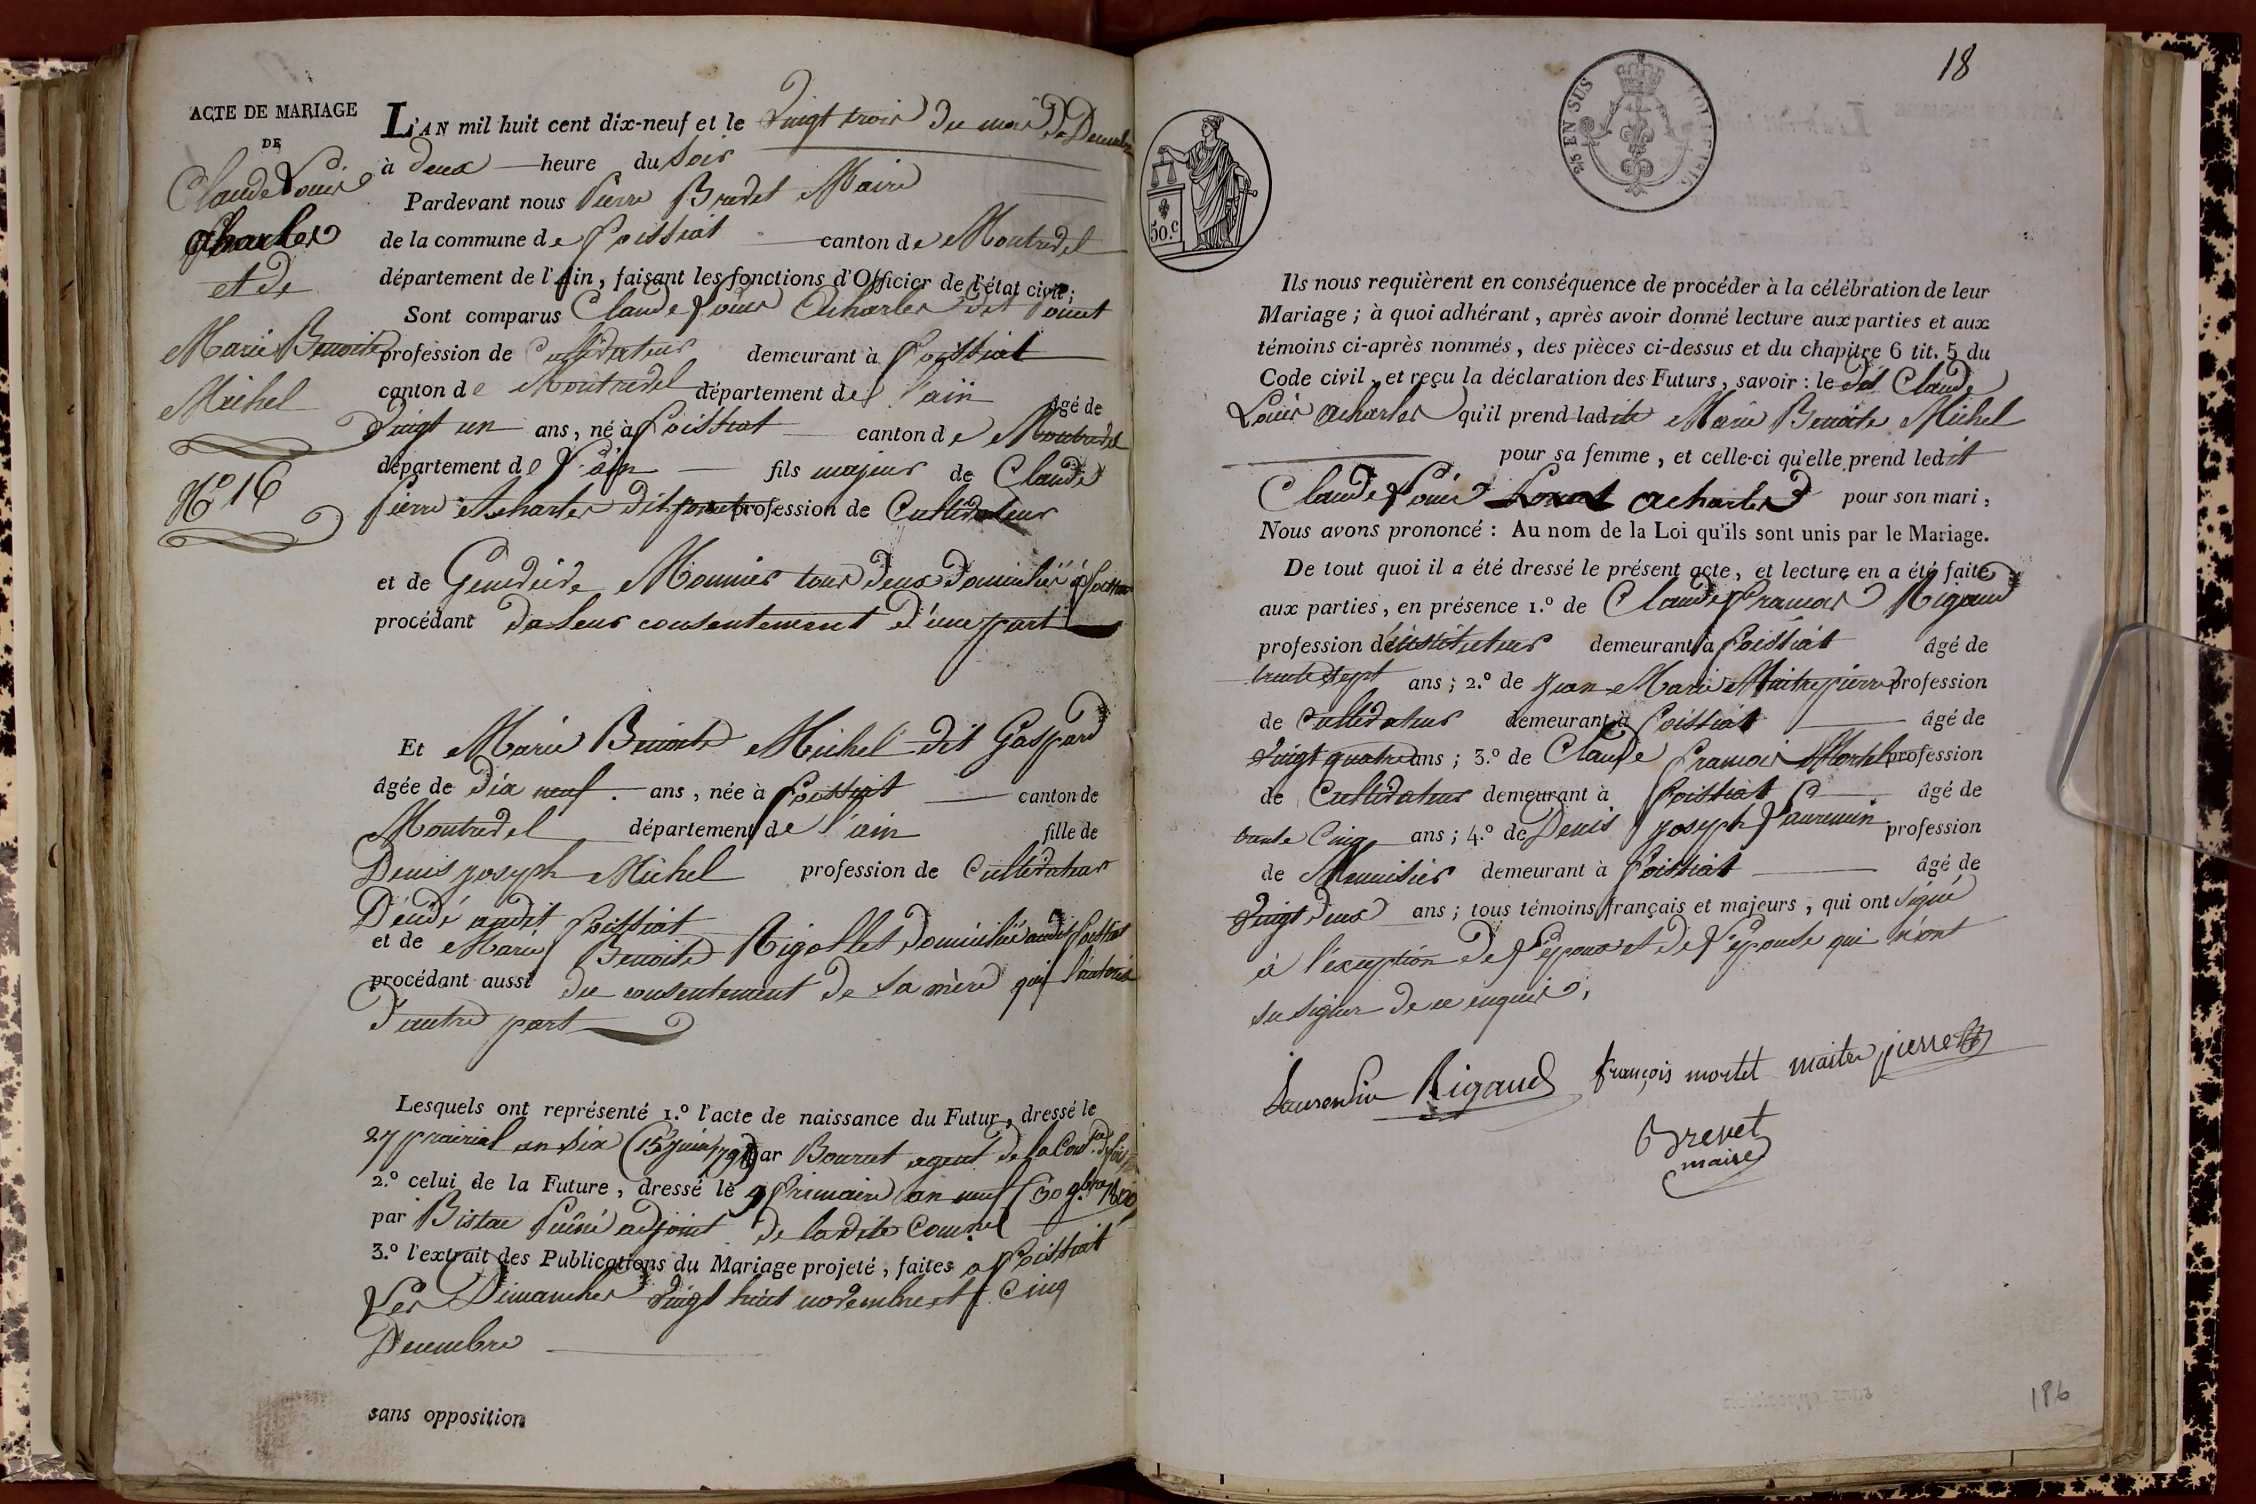 ACTE DE MARIAGE
DE
Claude Louis
Acharles
et de
Marie Benoite
Michel
N.º 16
L'AN mil huit cent dix-neuf et le Vingt trois du mois de Decembre
à deux heure du soir
Pardevant nous Pierre Brevet Maire
de la commune de Poissiat canton de Montrevel
département de l'Ain, faisant les fonctions d'Officier de l'état civil;
Sont comparus Claude Louis Acharles dit Ponut
profession de Cultivateur demeurant à Poissiat
canton de Montrevel département de l'ain âgé de
Vingt un ans, né à Poissiat canton de Montrevel
département de l'ain fils majeur de Claude
pierre Acharles dit profession de Cultivateur
et de Genevieve Monnier tous deux domiciliés à Poissiat
procédant de leur consentement d'une part
Et Marie Benoite Michel dit Gaspard
âgée de dix neuf ans, née à Poissiat canton de
Montrevel département de l'ain fille de
Denis joseph Michel profession de Cultivateur
Décédé audit Poissiat
et de Marie Benoite Rigollet domiciliée audit Poissiat
procédant aussi du consentement de sa mère qui l'autorise
d'autre part
Lesquels ont représenté 1.º l'acte de naissance du Futur, dressé le
27 prairial an six (15 juin 1798) par Bourcet agent de la Com.ne de Poissiat
2.º celui de la Future, dressé le 9 frimaire an neuf (30 9.bre 1800)
par Bistac puîné adjoint de ladite Comune
3.º l'extrait des Publications du Mariage projeté, faites a Poissiat
Les Dimanches Vingt huit novembre et Cinq
Decembre
sans opposition
18
25 EN SUS
50.c
Ils nous requièrent en conséquence de procéder à la célébration de leur
Mariage; à quoi adhérant, après avoir donné lecture aux parties et aux
témoins ci-après nommés, des pièces ci-dessus et du chapitre 6 tit. 5 du
Code civil, et reçu la déclaration des Futurs, savoir: le dit Claude
Louis Acharles qu'il prend ladite Marie Benoite Michel
pour sa femme, et celle-ci qu'elle prend ledit
Claude Louis Acharles pour son mari,
Nous avons prononcé: Au nom de la Loi qu'ils sont unis par le Mariage.
De tout quoi il a été dressé le présent acte, et lecture en a été faite
aux parties, en présence 1.º de Claude François Rigaud
profession d'instituteur demeurant à Poissiat âgé de
trente sept ans; 2.º de Jean Marie Maitrepierre profession
de Cultivateur demeurant à Poissiat âgé de
Vingt quatre ans; 3.º de Claude François Mortel profession
de Cultivateur demeurant à Poissiat âgé de
trente Cinq ans; 4.º de Denis Joseph Laurencin profession
de Menuisier demeurant à Poissiat âgé de
Vingt deux ans; tous témoins français et majeurs, qui ont signé
à l'exception de l'epoux et de l'epouse qui n'ont
su signer de ce enquis.
Laurencin Rigaud françois mortel maitre pierre
Brevet
maire
186